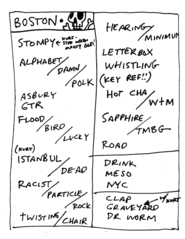 BOSTON
STOMPY
ALPHABET/
DAMN/
POLK
ASBURY
GTR
FLOOD/
BIRD/
LUCKY
(KURT)
ISTANBUL/
DEAD
RACIST/
PARTICLE/
ROCK
TWISTING/
CHAIR
HEARING/
MINIMUM
LETTERBOX
WHISTLING
(KEY REF!!)
HOT CHA/
W+M
SAPPHIRE/
TMBG
ROAD
DRINK
MESO
NYC
CLAP
GRAVEYARD
DR WORM